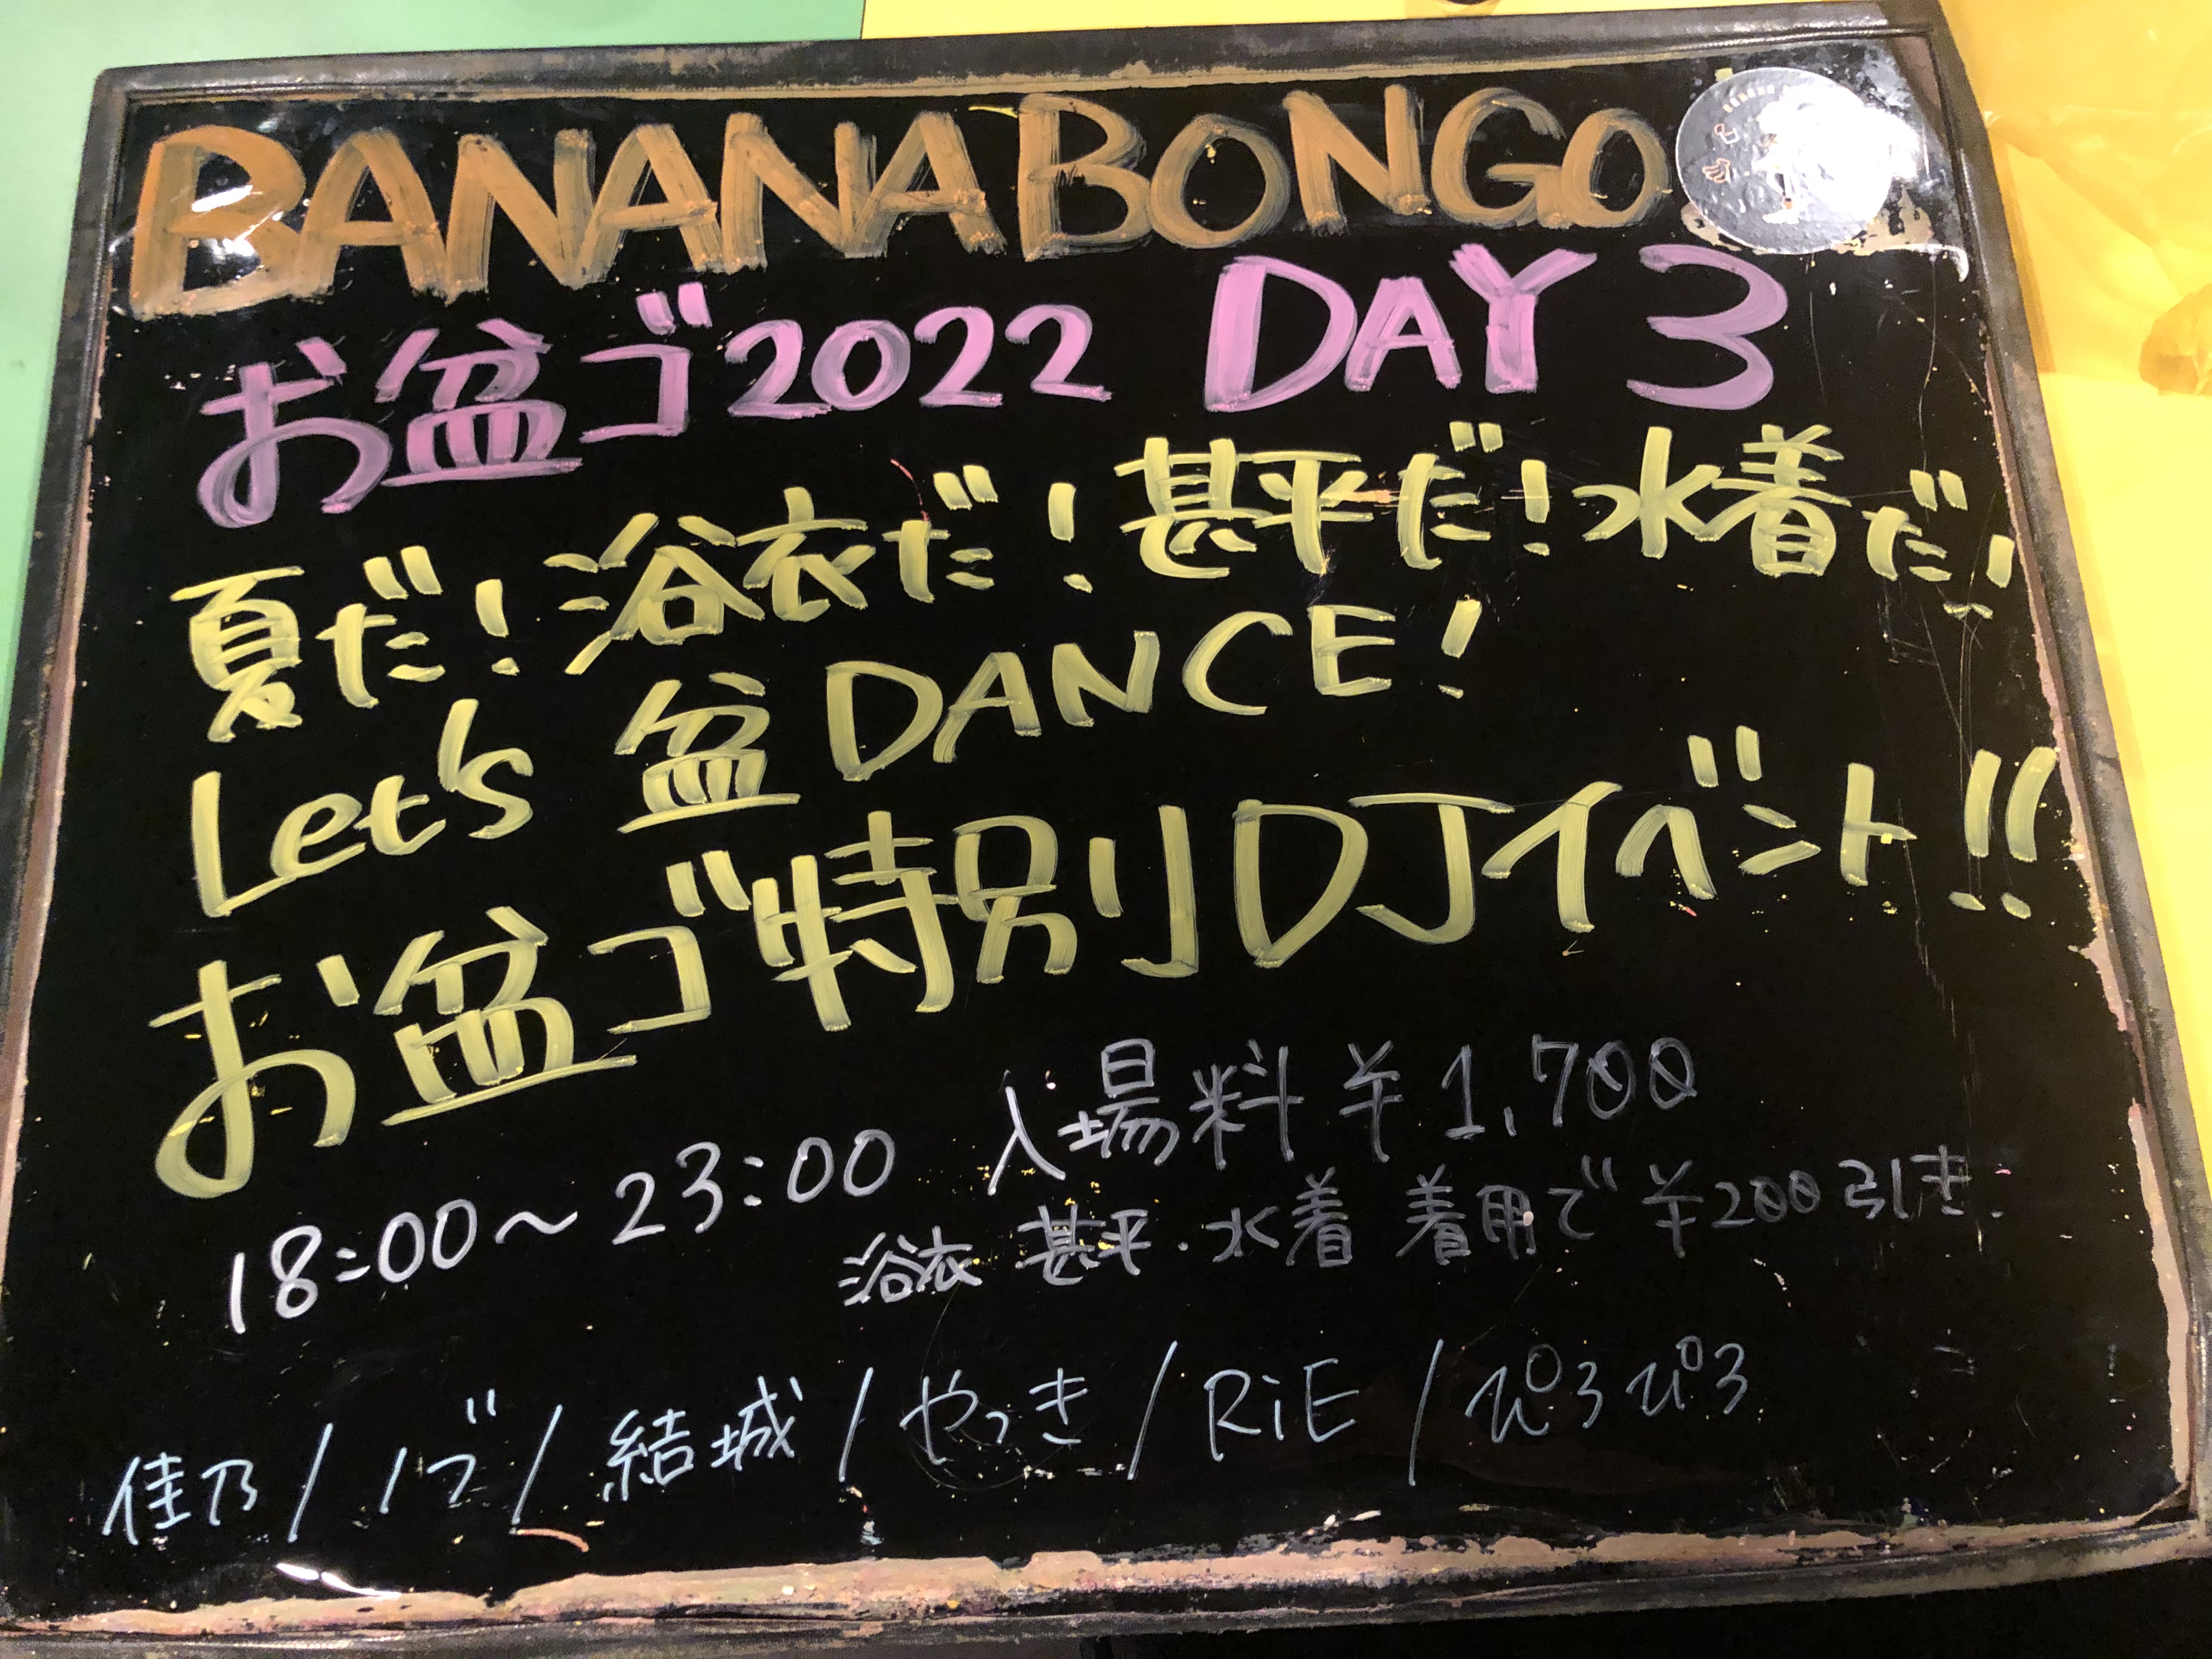 BANANA BONGO
お盆ゴ2022 DAY 3
夏だ!浴衣だ!甚平だ!水着だ!
Let's 盆 DANCE!
お盆ゴ特別DJイベント!!
18:00〜23:00 入場料¥1,700
浴衣 甚平・水着 着用で¥200引き.
佳乃/ノブ/結城/やっき/RiE/ぴろぴろ